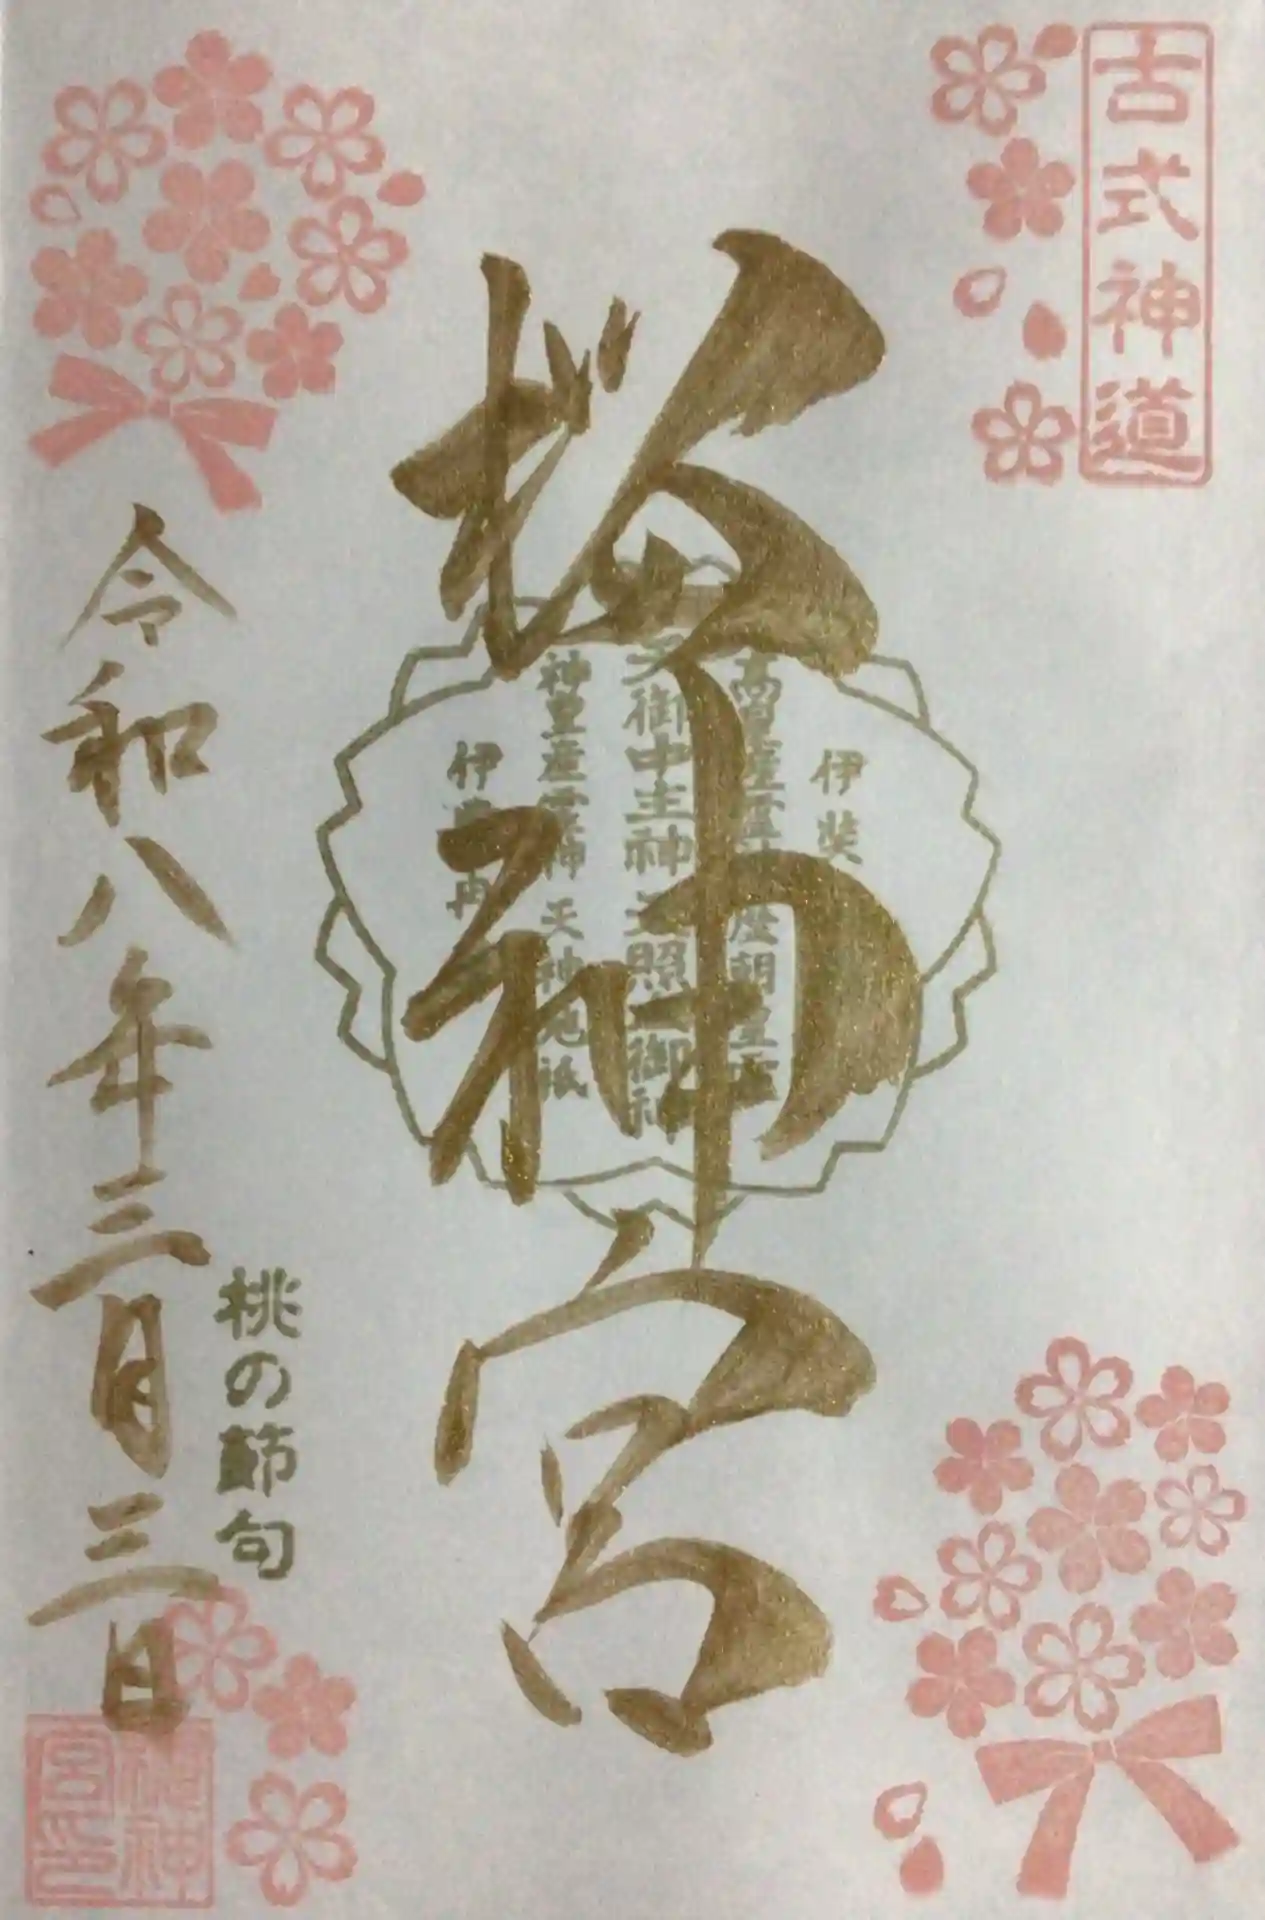 古式神道
桜神宮
伊弉
高皇産霊神 歴朝皇霊
天御中主神 天照大御神
神皇産霊神 天神地祇
伊 冉
桃の節句
令和八年三月三日
桜神
宮印